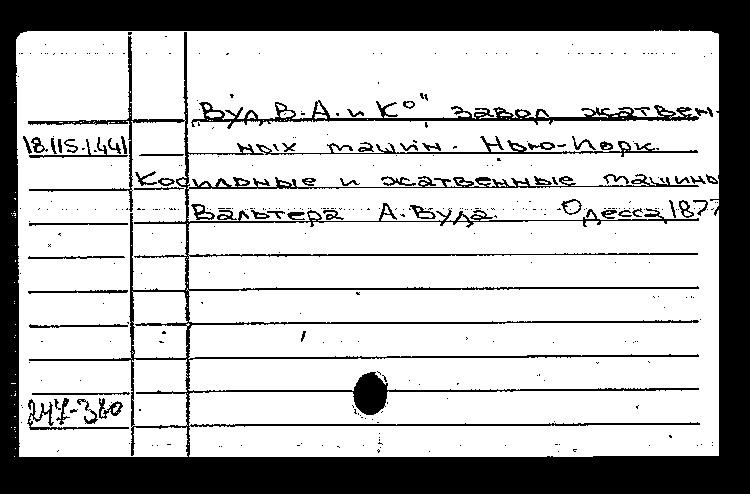 Вуд, В.А. и К°", завод жатвен-
18.115.1.441 ных машин. Нью-Йорк.
Косильные и жатвенные машины
Вальтера А. Вуда. Одесса, 1877
247-320